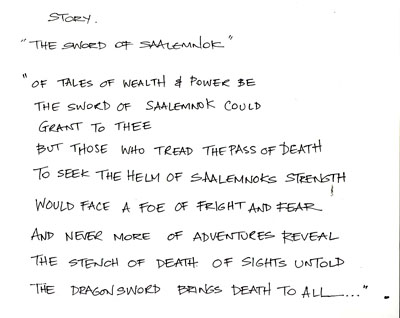 STORY.
"THE SWORD OF SAALEMNOK"
"OF TALES OF WEALTH & POWER BE
THE SWORD OF SAALEMNOK COULD
GRANT TO THEE
BUT THOSE WHO TREAD THE PASS OF DEATH
TO SEEK THE HELM OF SAALEMNOKS STRENGTH
WOULD FACE A FOE OF FRIGHT AND FEAR
AND NEVER MORE OF ADVENTURES REVEAL
THE STENCH OF DEATH OF SIGHTS UNTOLD
THE DRAGONSWORD BRINGS DEATH TO ALL...".